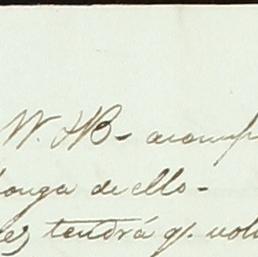 W. HB- acomp
onga de ello-
ez tendrá q. vol